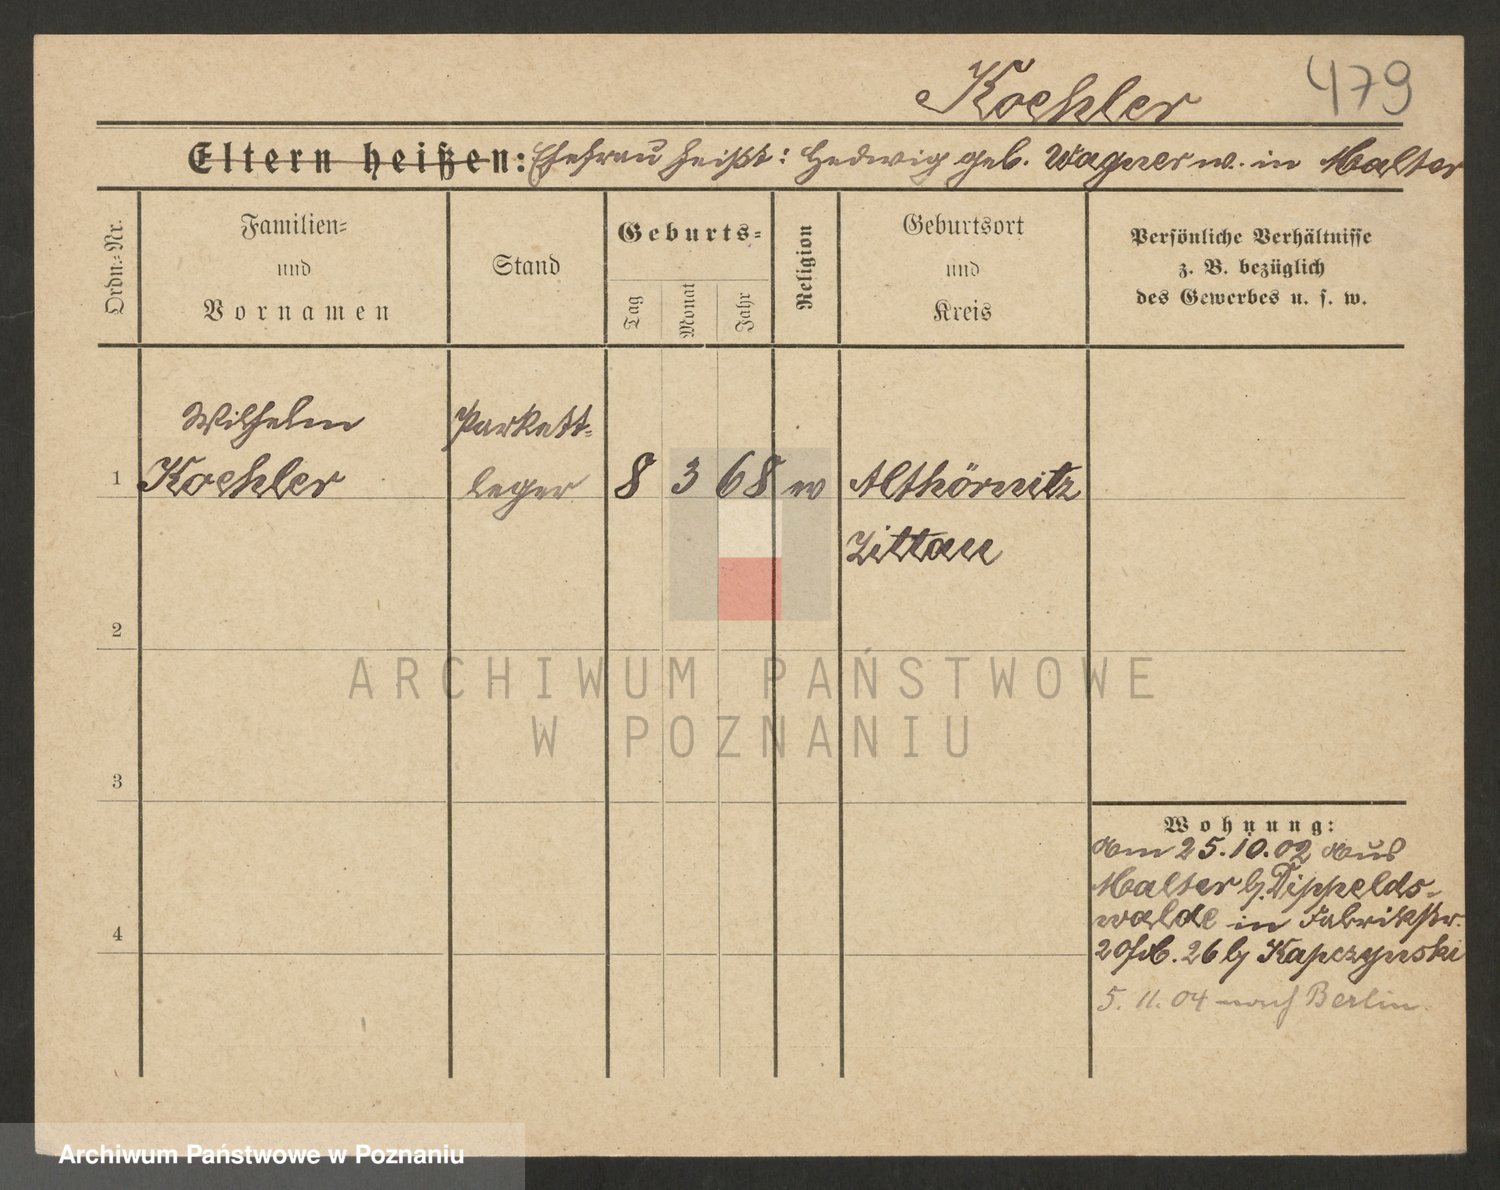 Koehler 479
Eltern heißen: Ehefrau heißt: Hedwig geb. Wagner w. in Malter
Ordn.-Nr.
Familien-
und
Vornamen
Stand
Geburts-
Tag
Monat
Jahr
Religion
Geburtsort
und
Kreis
Persönliche Verhältnisse
z. B. bezüglich
des Gewerbes u. s. w.
Wilhelm Parkett-
1 Koehler leger 8 3 68 w Althörnitz
Zittau
2
ARCHIWUM PAŃSTWOWE
W POZNANIU
3
Wohnung:
am 25.10.02 aus
Malter b. Dippelds-
walde in Fabrikstr.
26 b Kapczynski
4
5. 11. 04 nach Berlin.
Archiwum Państwowe w Poznaniu